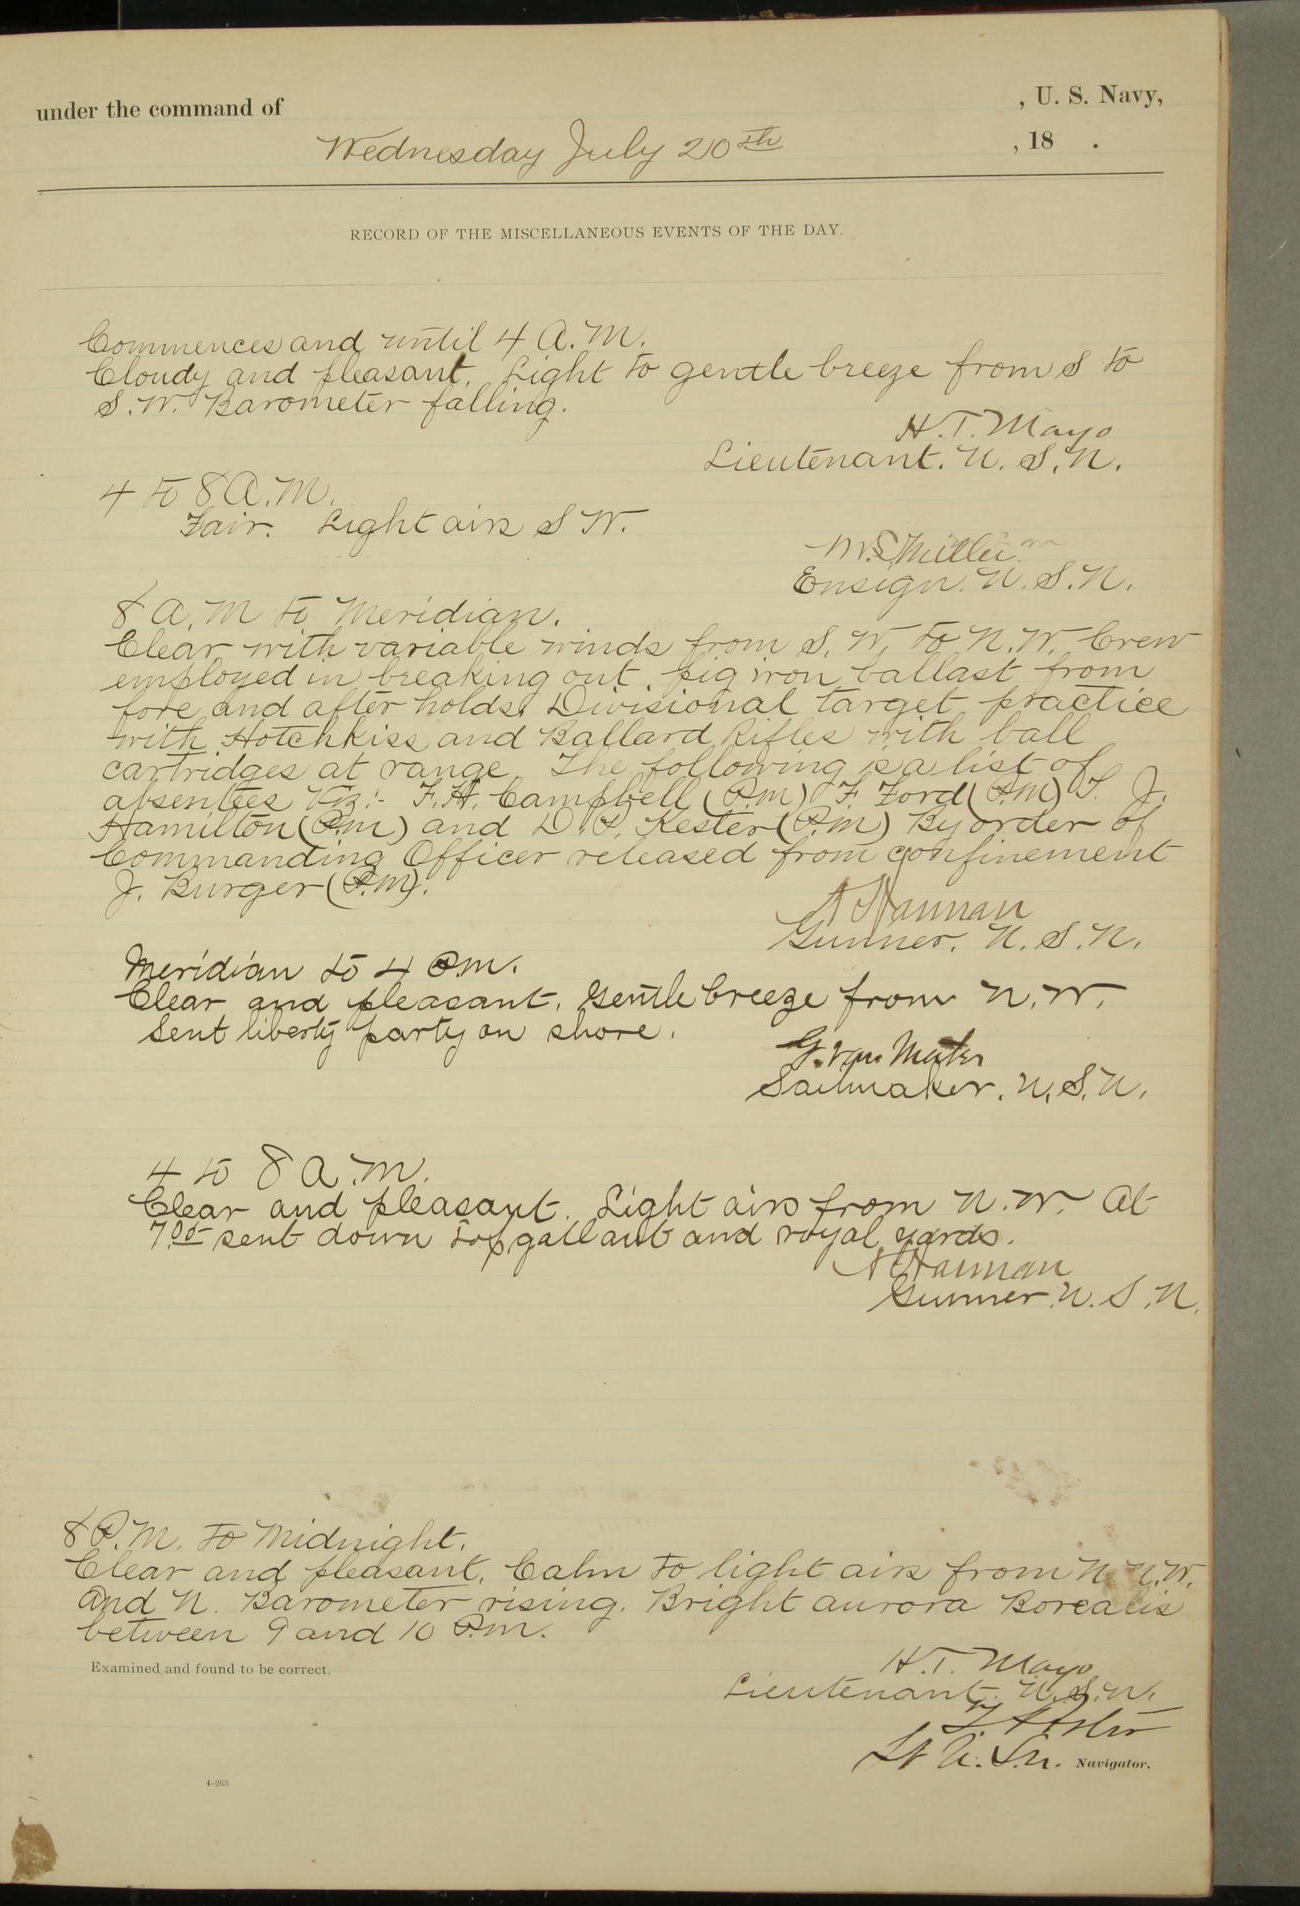 under the command of , U. S. Navy,
Wednesday July 20th , 18 .
RECORD OF THE MISCELLANEOUS EVENTS OF THE DAY.
Commences and until 4 A.M.
Cloudy and pleasant. Light to gentle breeze from S to
S.W. Barometer falling.
H.T. Mayo
Lieutenant. U.S.N.
4 to 8 A.M.
Fair. Light airs S W.
Ensign. U.S.N.
8 A.M to Meridian.
Clear with variable winds from S.W. to N.W. Crew
employed in breaking out pig iron ballast from
fore and after holds. Divisional target practice
with Hotchkiss and Ballard Rifles with ball
cartridges at range. The following is a list of
absentees viz:- F.H. Campbell (P.m) F. Ford (P.m) T. J.
Hamilton (P.m) and D.P. Kester (P.m) By order of
Commanding Officer released from confinement
J. Burger (P.m).
Gunner. U.S.N.
Meridian to 4 P.m.
Clear and pleasant. Gentle breeze from N.W.
Sent liberty party on shore.
G. Van Mater
Sailmaker. U.S.N.
4 to 8 A.M.
Clear and pleasant. Light airs from N.W. At
7.05 sent down topgallant and royal yards.
Gunner. U.S.N.
8 P.M. to Midnight.
Clear and pleasant. Calm to light airs from N.N.W.
and N. Barometer rising. Bright aurora Borealis
between 9 and 10 P.m.
Examined and found to be correct.
H.T. Mayo
Lieutenant. U.S.N.
Lt U.S.N. Navigator.
4-265